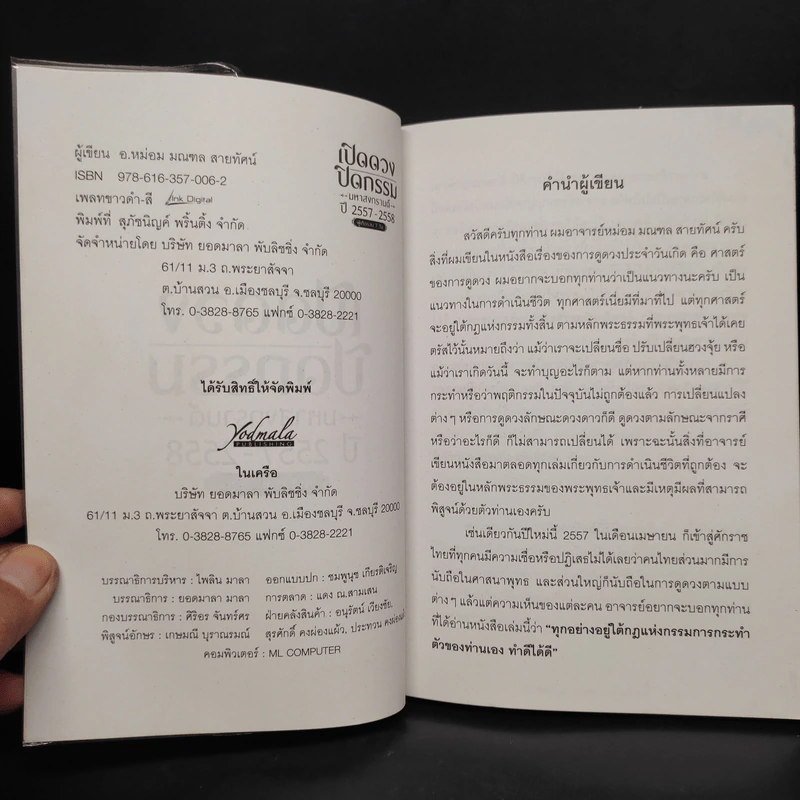 ผู้เขียน อ.หม่อม มณฑล สายทัศน์
ISBN 978-616-357-006-2
เพลทขาวดำ-สี Ink Digital
พิมพ์ที่ สุภัชนิญค์ พริ้นติ้ง จำกัด
จัดจำหน่ายโดย บริษัท ยอดมาลา พับลิชชิ่ง จำกัด
61/11 ม.3 ถ.พระยาสัจจา
ต.บ้านสวน อ.เมืองชลบุรี จ.ชลบุรี 20000
โทร. 0-3828-8765 แฟกซ์ 0-3828-2221
เปิดดวง
ปิดกรรม
มหาสงกรานต์
ปี 2557-2558
ได้รับสิทธิ์ให้จัดพิมพ์
Yodmala
PUBLISHING
ในเครือ
บริษัท ยอดมาลา พับลิชชิ่ง จำกัด
61/11 ม.3 ถ.พระยาสัจจา ต.บ้านสวน อ.เมืองชลบุรี จ.ชลบุรี 20000
โทร. 0-3828-8765 แฟกซ์ 0-3828-2221
บรรณาธิการบริหาร : ไพลิน มาลา
บรรณาธิการ : ยอดมาลา มาลา
กองบรรณาธิการ : ศิริอร จันทร์ศร
พิสูจน์อักษร : เกษมณี บุราณรมณ์
ออกแบบปก : ชมพูนุช เกียรติเจริญ
การตลาด : แดง ณ.สามเสน
ฝ่ายคลังสินค้า : อนุรัตน์ เวียงชัย,
สุรศักดิ์ คงผ่องแผ้ว, ประทวน คงผ่องแผ้ว
คอมพิวเตอร์ : ML COMPUTER
คำนำผู้เขียน
สวัสดีครับทุกท่าน ผมอาจารย์หม่อม มณฑล สายทัศน์ ครับ
สิ่งที่ผมเขียนในหนังสือเรื่องของการดูดวงประจำวันเกิด คือ ศาสตร์
ของการดูดวง ผมอยากจะบอกทุกท่านว่าเป็นแนวทางนะครับ เป็น
แนวทางในการดำเนินชีวิต ทุกศาสตร์เนี่ยมีที่มาที่ไป แต่ทุกศาสตร์
จะอยู่ใต้กฎแห่งกรรมทั้งสิ้น ตามหลักพระธรรมที่พระพุทธเจ้าได้เคย
ตรัสไว้นั้นหมายถึงว่า แม้ว่าเราจะเปลี่ยนชื่อ ปรับเปลี่ยนฮวงจุ้ย หรือ
แม้ว่าเราเกิดวันนี้ จะทำบุญอะไรก็ตาม แต่หากท่านทั้งหลายมีการ
กระทำหรือว่าพฤติกรรมในปัจจุบันไม่ถูกต้องแล้ว การเปลี่ยนแปลง
ต่างๆ หรือการดูดวงลักษณะดวงดาวก็ดี ดูดวงตามลักษณะจากราศี
หรือว่าอะไรก็ดี ก็ไม่สามารถเปลี่ยนได้ เพราะฉะนั้นสิ่งที่อาจารย์
เขียนหนังสือมาตลอดทุกเล่มเกี่ยวกับการดำเนินชีวิตที่ถูกต้อง จะ
ต้องอยู่ในหลักพระธรรมของพระพุทธเจ้าและมีเหตุมีผลที่สามารถ
พิสูจน์ด้วยตัวท่านเองครับ
เช่นเดียวกันปีใหม่นี้ 2557 ในเดือนเมษายน ก็เข้าสู่ศักราช
ไทยที่ทุกคนมีความเชื่อหรือปฏิเสธไม่ได้เลยว่าคนไทยส่วนมากมีการ
นับถือในศาสนาพุทธ และส่วนใหญ่ก็นับถือในการดูดวงตามแบบ
ต่างๆ แล้วแต่ความเห็นของแต่ละคน อาจารย์อยากจะบอกทุกท่าน
ที่ได้อ่านหนังสือเล่มนี้ว่า "ทุกอย่างอยู่ใต้กฎแห่งกรรมการกระทำ
ตัวของท่านเอง ทำดีได้ดี"